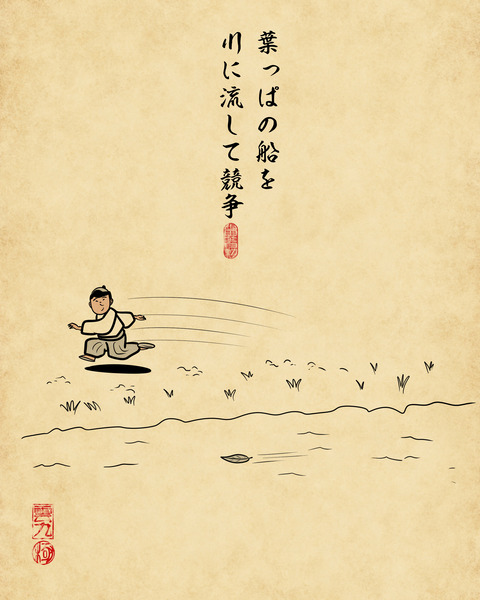 葉っぱの船を
川に流して競争